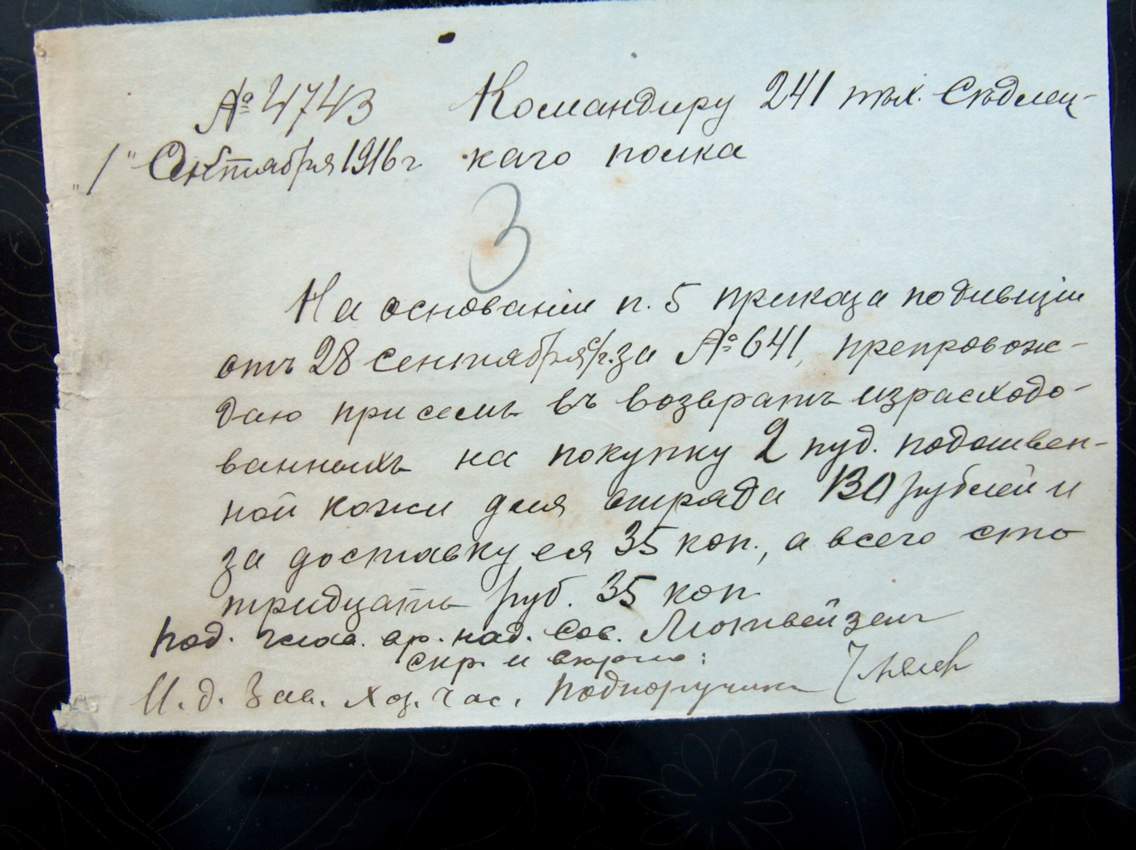 № 4743 Командиру 241 пѣх. Сѣдлец-
"1" Сентября 1916 г каго полка
3
На основаніи п. 5 приказа подивизіи
отъ 28 сентября с/г. за № 641, препровож-
даю присемъ въ возвратъ израсходо-
ванныхъ на покупку 2 пуд. подошвен-
ной кожи для отряда 130 рублей и
за доставку ея 35 коп., а всего сто
тридцать руб. 35 коп
Под. над. Сов.
скр. и вѣрно:
И. д. Зав. Хоз. Час. Подпоручикъ